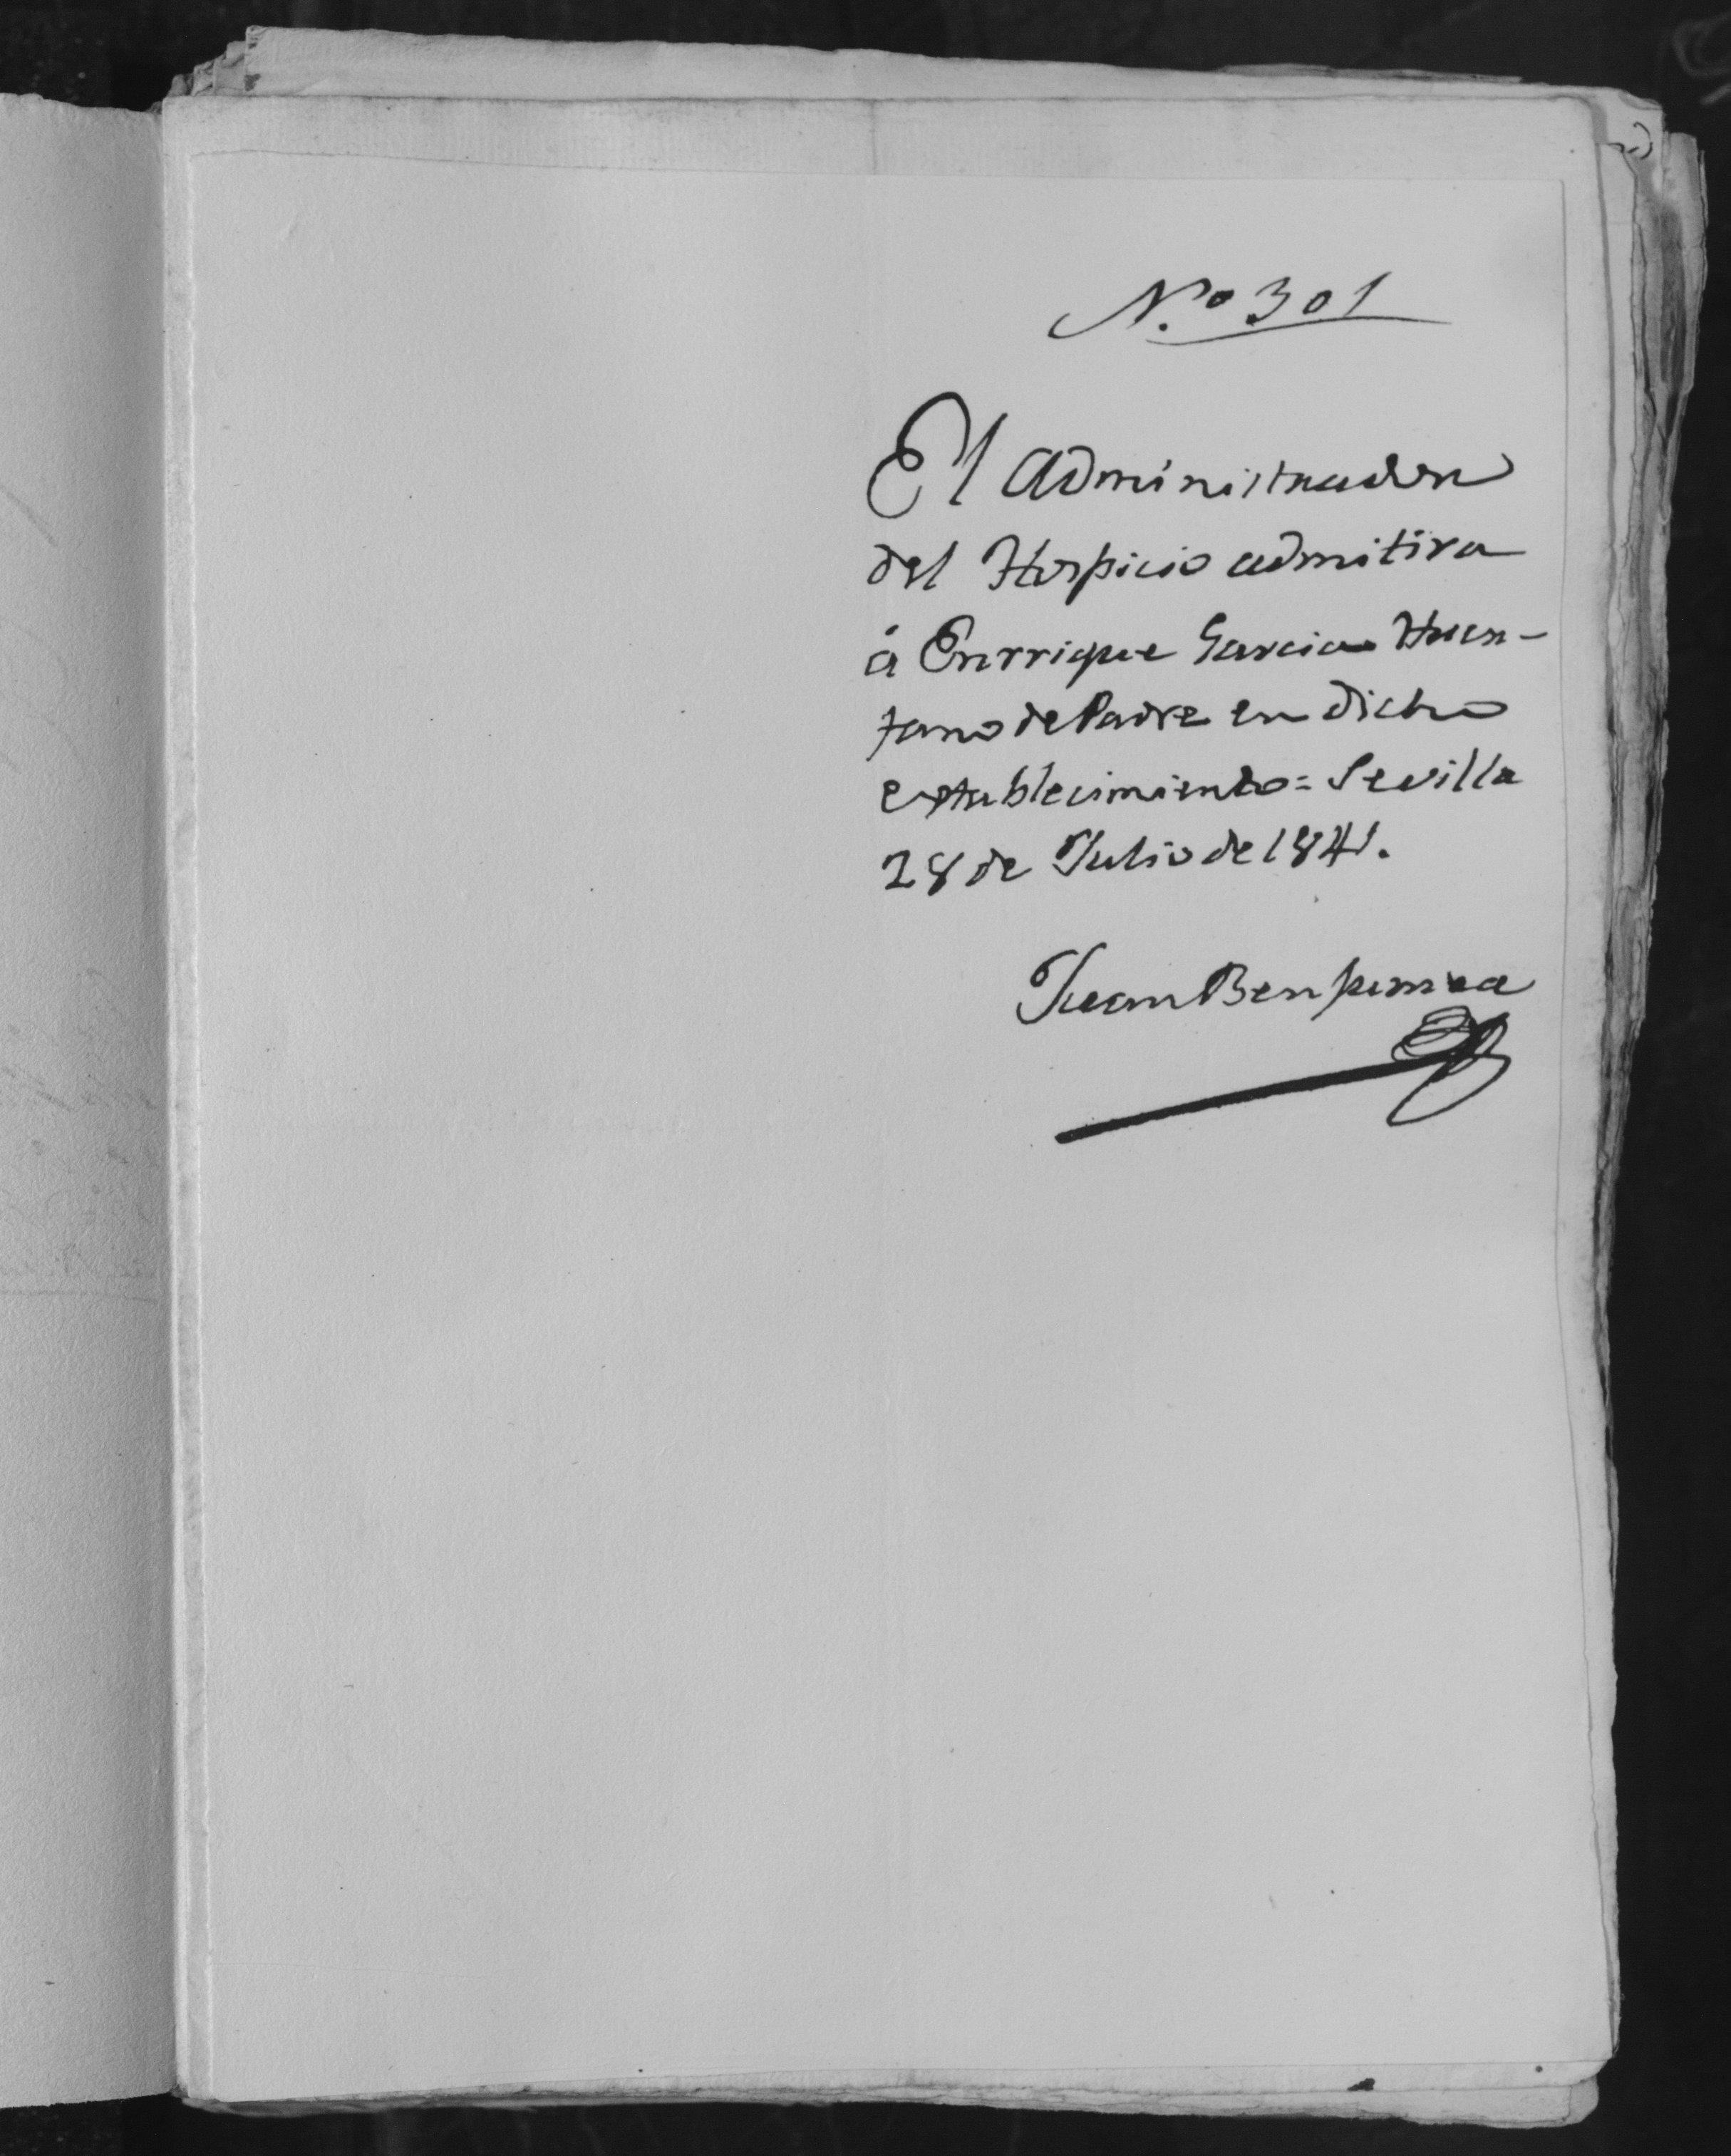 N.º 301
El Administrador
del Hospicio admitira
á Enrrique Garcia Huer-
fano de Padre en dicho
establecimiento = Sevilla
28 de Julio de 1841.
Juan Benjumea